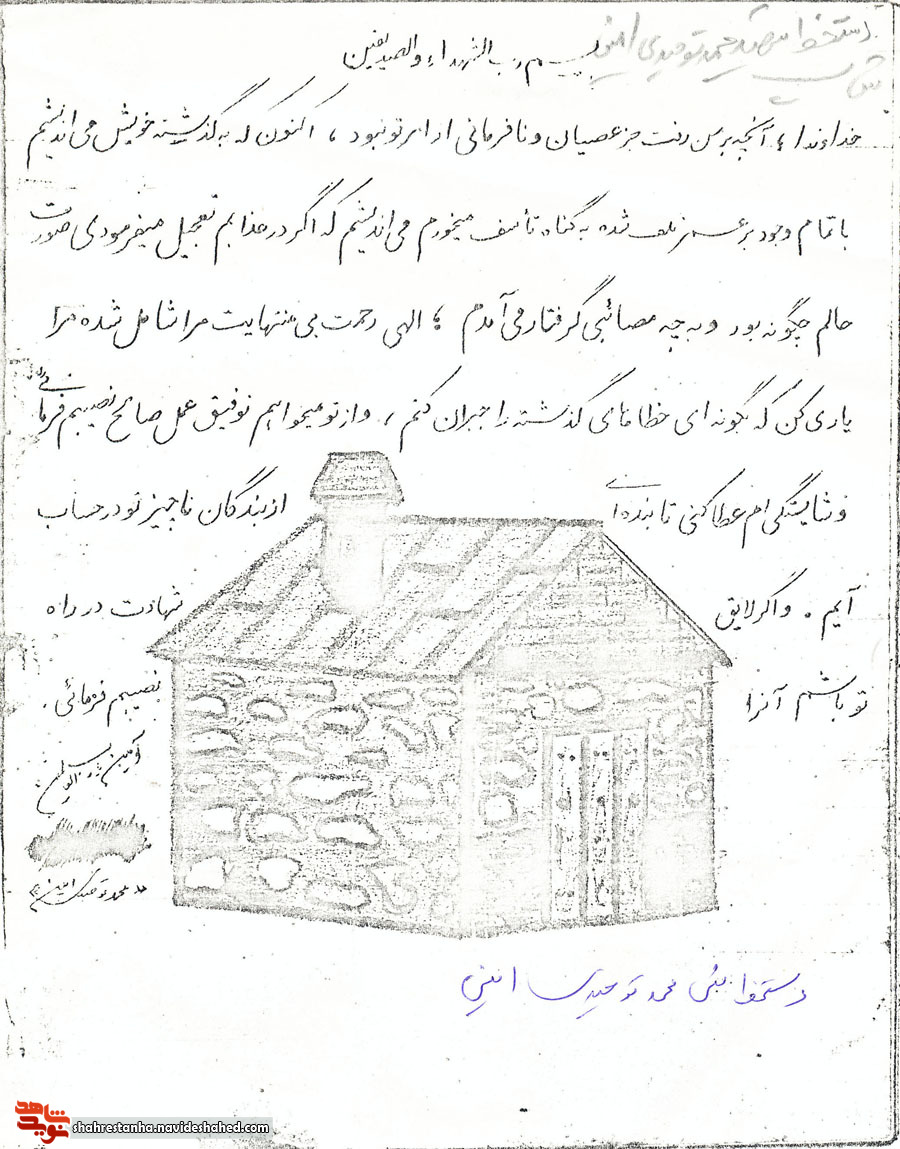 دستخط شهید محمد توحیدی امین
بسم رب الشهداء والصدیقین
خداوندا ، آنچه برمن رفت جز عصیان و نافرمانی از امر تو نبود ، اکنون که به گذشته خویش می اندیشم
با تمام وجود بر عمر تلف شده به گناه تأسف میخورم می اندیشم که اگر در عذابم تعجیل میفرمودی صورت
حالم چگونه بود و به چه مصائبی گرفتار می آمدم ، الهی رحمت بی منتهایت مرا شامل شده مرا
یاری کن که بگونه ای خطاهای گذشته را جبران کنم ، و از تو میخواهم توفیق عمل صالح نصیبم فرمائی
و شایستگی ام عطا کنی تا بنده ای از بندگان ناچیز تو در حساب
آیم . و اگر لایق شهادت در راه
تو باشم آنرا نصیبم فرمائی .
آمین
محمد توحیدی امین
محمد توحیدی امین
نوید شاهد
shahrestanha.navideshahed.com